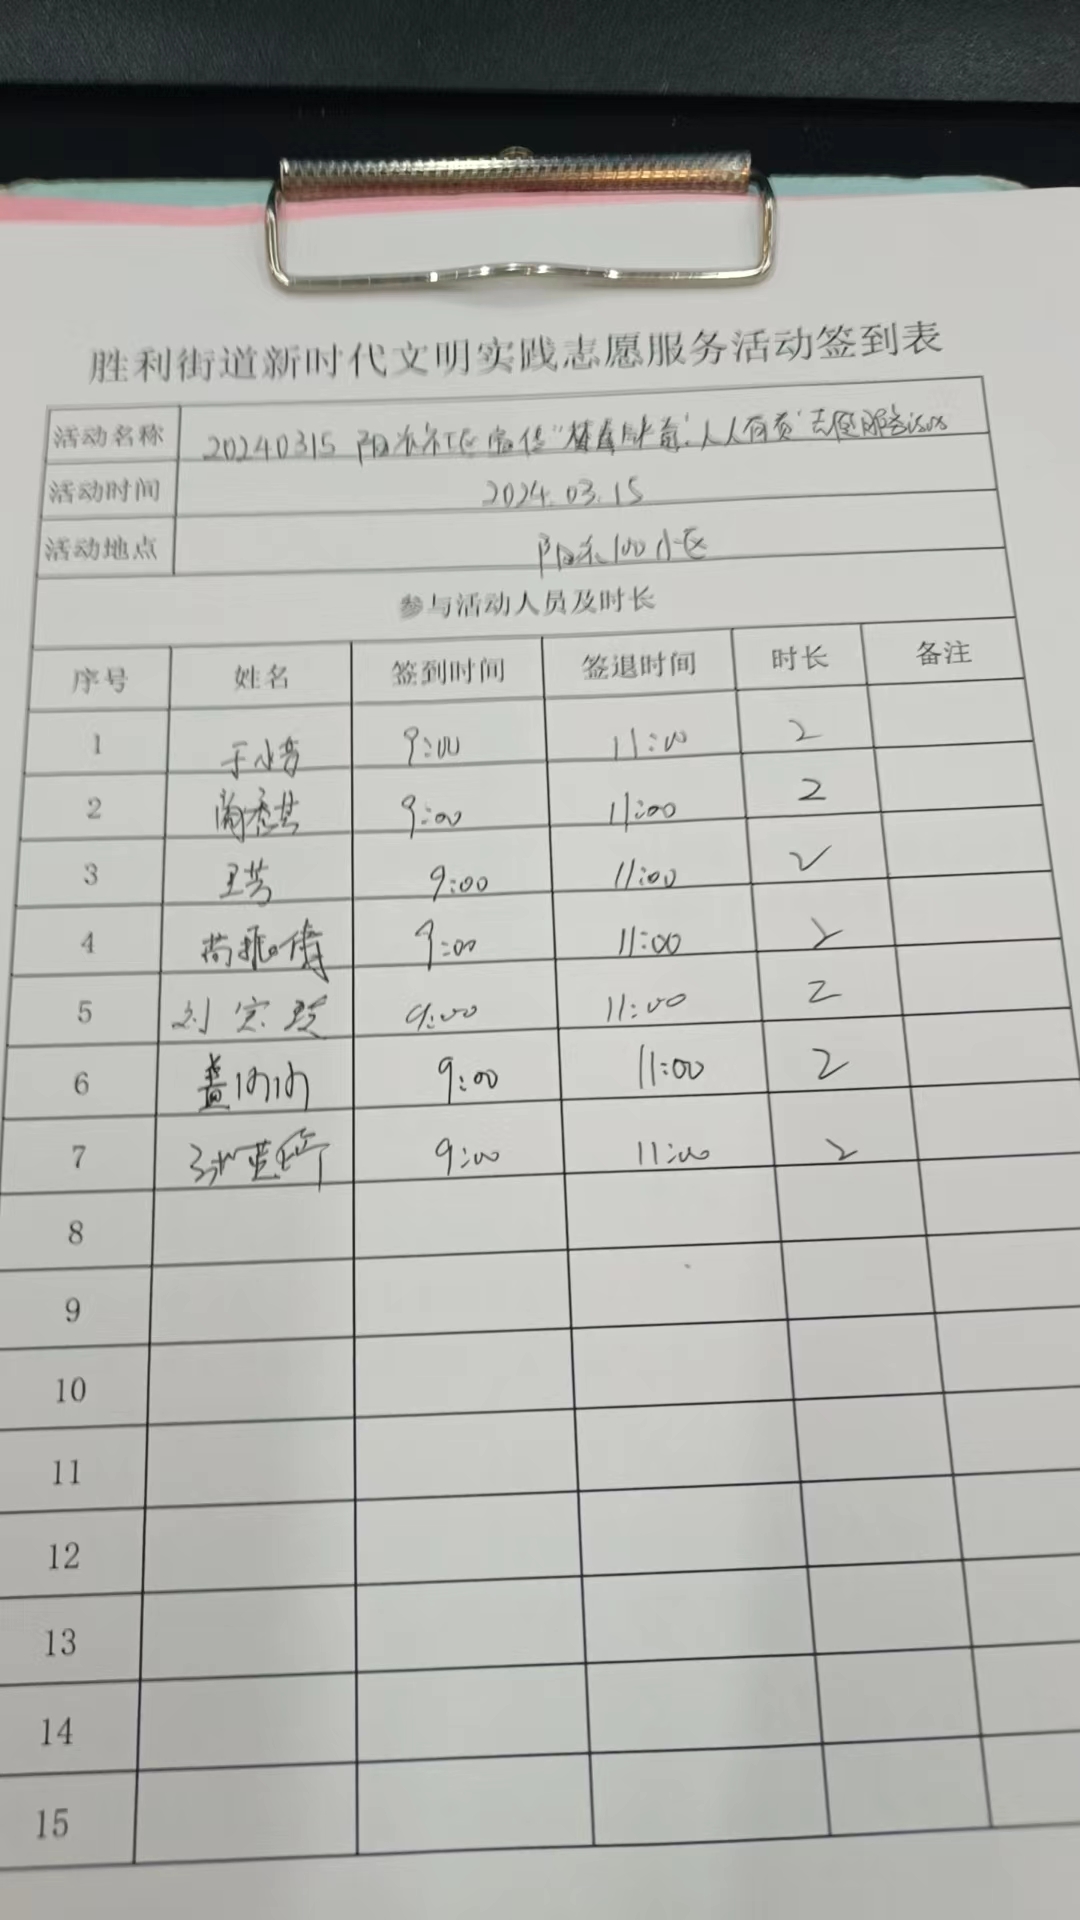 胜利街道新时代文明实践志愿服务活动签到表
活动名称 20240315 阳光社区宣传“ 人人有责”志愿服务活动
活动时间 2024.03.15
活动地点 阳光100小区
参与活动人员及时长
序号 姓名 签到时间 签退时间 时长 备注
1 9:00 11:00 2
2 9:00 11:00 2
3 王芳 9:00 11:00 2
4 9:00 11:00 2
5 9:00 11:00 2
6 9:00 11:00 2
7 9:00 11:00 2
8
9
10
11
12
13
14
15